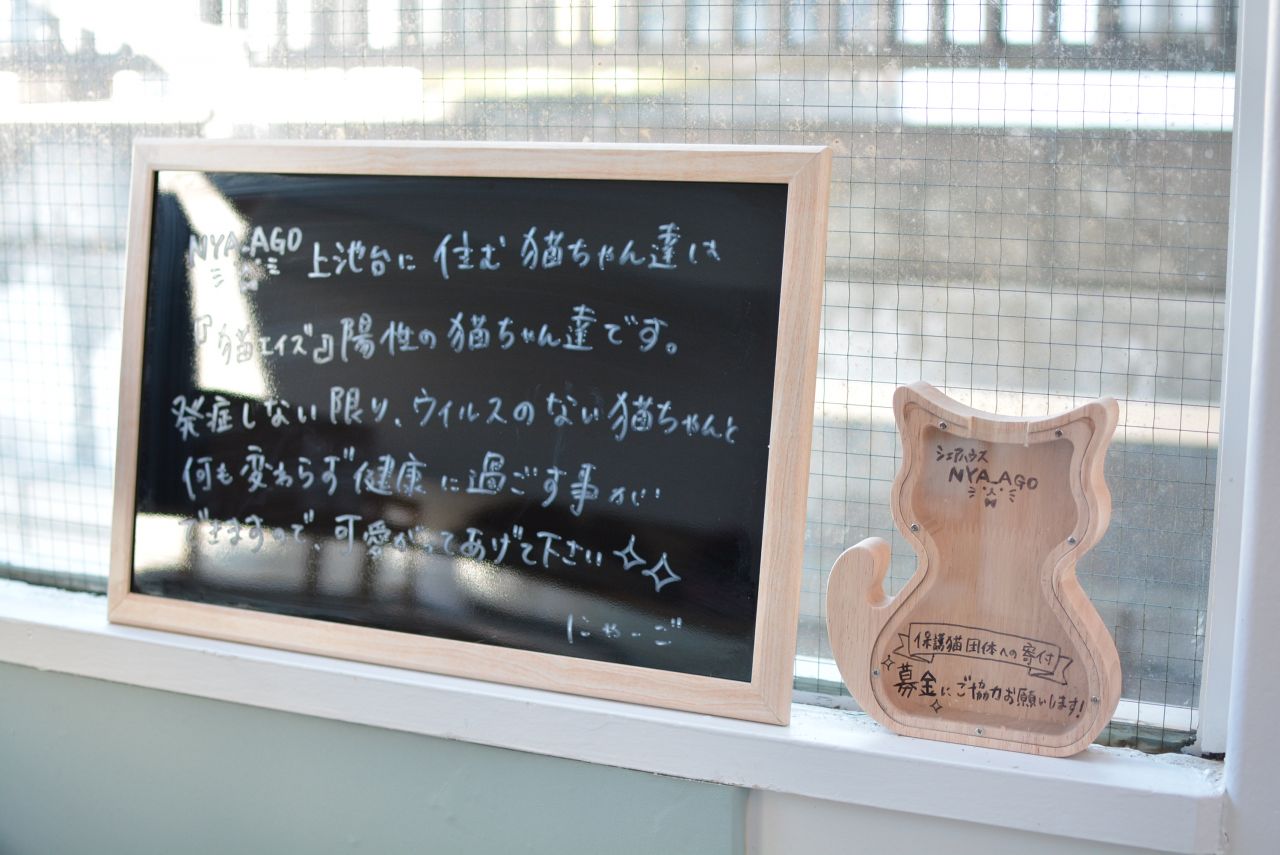 NYA_AGO 上池台に 住む 猫ちゃん達は
『猫エイズ』陽性の猫ちゃん達です。
発症しない限り、ウィルスのない猫ちゃんと
何も変わらず健康に過ごす事が
できますので、可愛がってあげて下さい
にゃーご
シェアハウス
NYA_AGO
保護猫団体への寄付
募金にご協力お願いします!